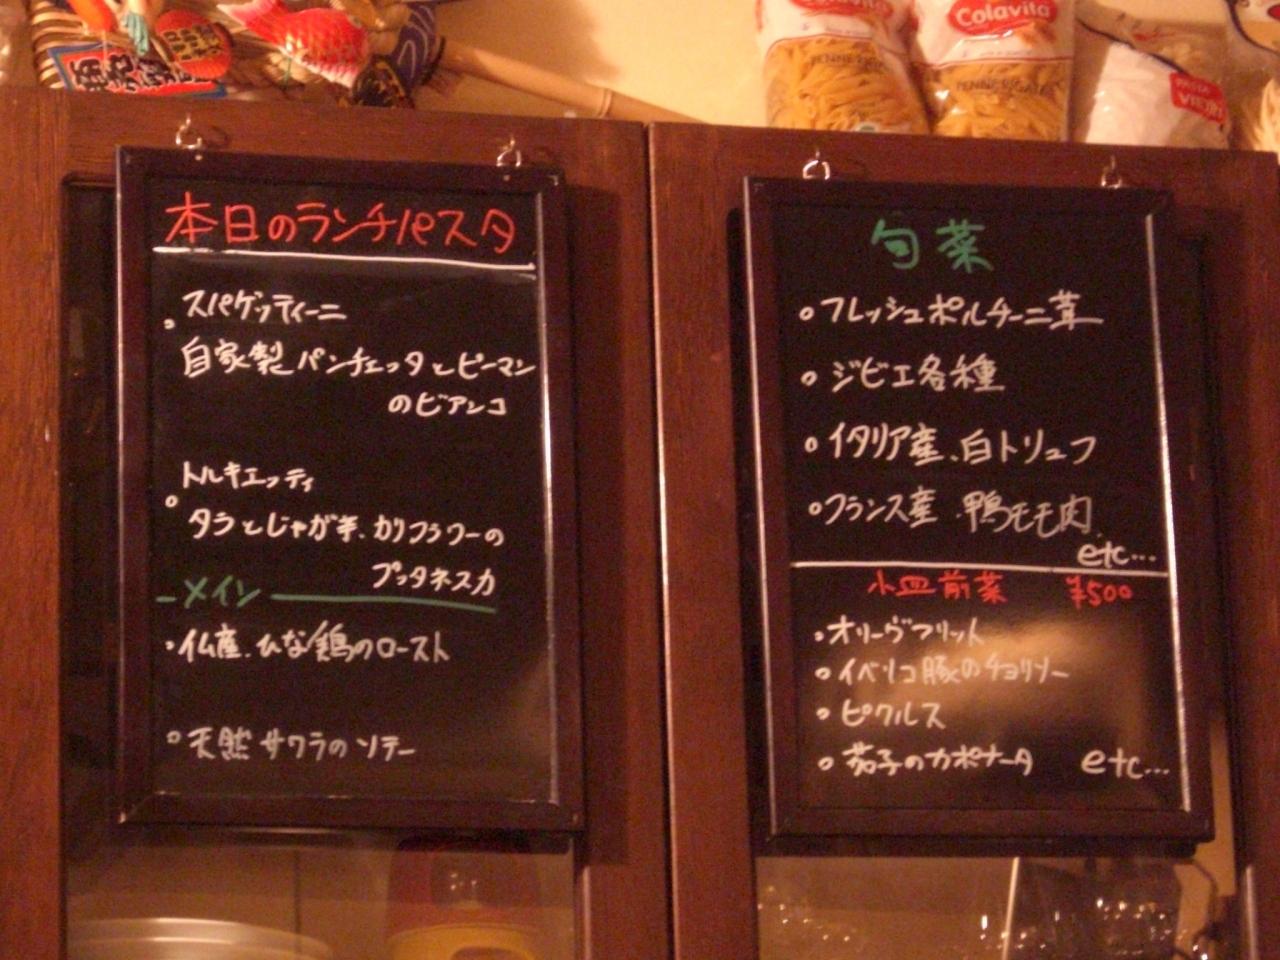 本日のランチパスタ
スパゲッティーニ
自家製パンチェッタとピーマン
のビアンコ
トルキエッティ
タラとじゃが芋、カリフラワーの
プッタネスカ
メイン
仏産、ひな鶏のロースト
天然サワラのソテー
旬菜
フレッシュポルチーニ茸
ジビエ各種
イタリア産、白トリュフ
フランス産、鴨モモ肉、
etc…
小皿前菜 ¥500
オリーヴフリット
イベリコ豚のチョリソー
ピクルス
茄子のカポナータ etc…
Colavita
PENNE RIGATE
Colavita
PENNE RIGATE
PASTA